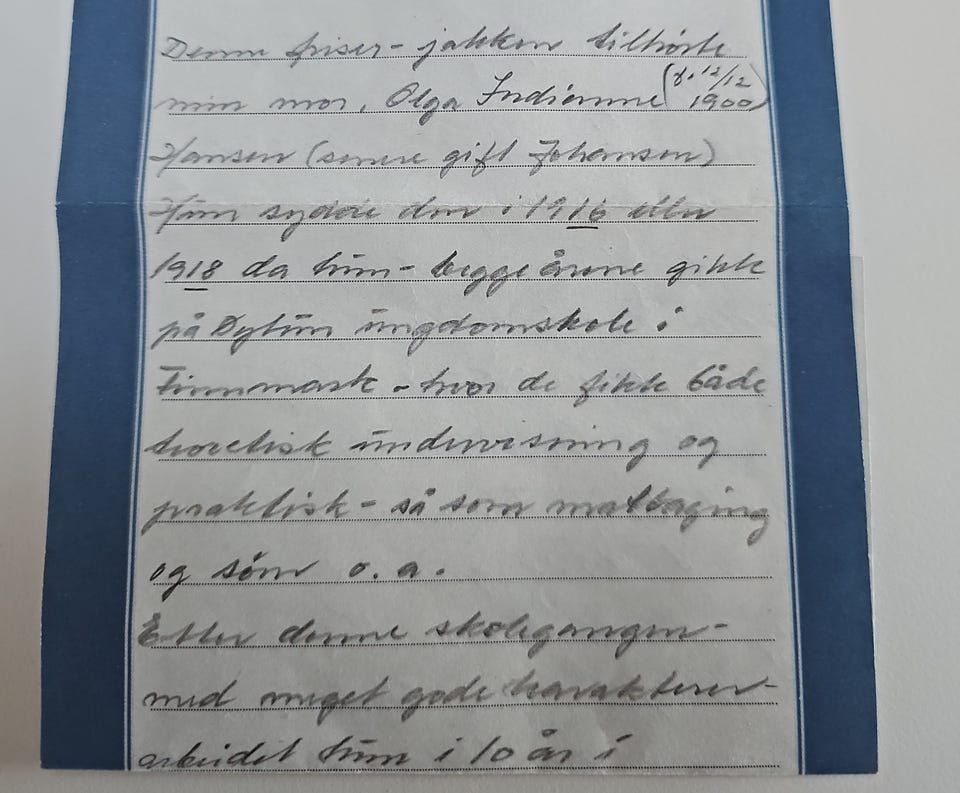 Denne friser-jakken tilhørte
min mor, Olga Indianne (f. 12/12 1900)
Hansen (senere gift Johansen)
Hun sydde den i 1916 eller
1918 da hun - begge årene gikk
på ungdomskole i
Finnmark - hvor de fikk både
teoretisk undervisning og
praktisk - så som matlaging
og søm o.a.
Etter denne skolegangen -
med meget gode karakterer -
arbeidet hun i 10 år i